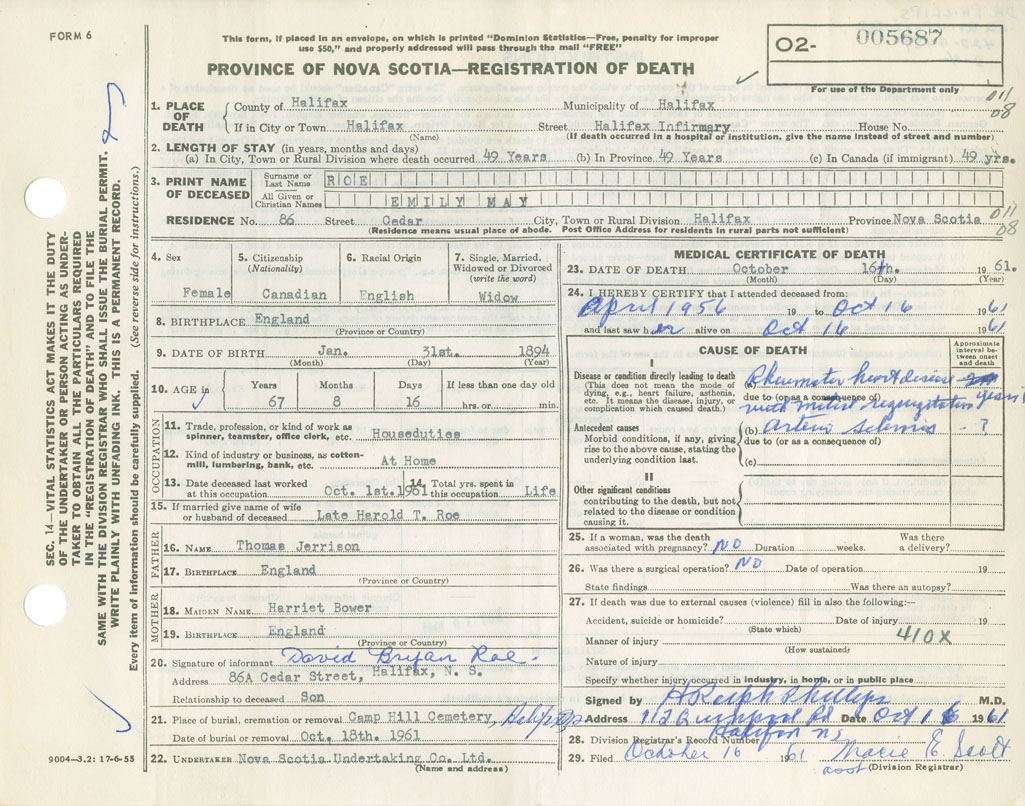 FORM 6
This form, if placed in an envelope, on which is printed "Dominion Statistics—Free, penalty for improper
use $50," and properly addressed will pass through the mail "FREE"
PROVINCE OF NOVA SCOTIA—REGISTRATION OF DEATH
O2- 005687
For use of the Department only
011
08
1. PLACE OF DEATH
County of Halifax Municipality of Halifax
If in City or Town Halifax Street Halifax Infirmary House No.
(Name) (If death occurred in a hospital or institution, give the name instead of street and number)
2. LENGTH OF STAY (in years, months and days)
(a) In City, Town or Rural Division where death occurred 49 Years (b) In Province 49 Years (c) In Canada (if immigrant) 49 yrs.
3. PRINT NAME OF DECEASED
Surname or Last Name ROE
All Given or Christian Names EMILY MAY
RESIDENCE No. 86 Street Cedar City, Town or Rural Division Halifax Province Nova Scotia
(Residence means usual place of abode. Post Office Address for residents in rural parts not sufficient)
011
08
4. Sex
Female
5. Citizenship
(Nationality)
Canadian
6. Racial Origin
English
7. Single, Married, Widowed or Divorced
(write the word)
Widow
8. BIRTHPLACE England
(Province or Country)
9. DATE OF BIRTH Jan. 31st. 1894
(Month) (Day) (Year)
10. AGE in
Years Months Days If less than one day old
67 8 16 hrs. or min.
OCCUPATION
11. Trade, profession, or kind of work as
spinner, teamster, office clerk, etc. Houseduties
12. Kind of industry or business, as cotton-
mill, lumbering, bank, etc. At Home
13. Date deceased last worked
at this occupation Oct. 1st. 1961
14. Total yrs. spent in
this occupation Life
15. If married give name of wife
or husband of deceased Late Harold T. Roe
FATHER
16. NAME Thomas Jerrison
17. BIRTHPLACE England
(Province or Country)
MOTHER
18. MAIDEN NAME Harriet Bower
19. BIRTHPLACE England
(Province or Country)
20. Signature of informant David Bryan Roe.
Address 86A Cedar Street, Halifax, N. S.
Relationship to deceased Son
21. Place of burial, cremation or removal Camp Hill Cemetery, Halifax
Date of burial or removal Oct. 18th. 1961
22. UNDERTAKER Nova Scotia Undertaking Co. Ltd.
(Name and address)
MEDICAL CERTIFICATE OF DEATH
23. DATE OF DEATH October 16th. 1961.
(Month) (Day) (Year)
24. I HEREBY CERTIFY that I attended deceased from:
April 1956 19 to Oct 16 1961
and last saw her alive on Oct 16 1961
CAUSE OF DEATH
Approximate interval between onset and death
I
Disease or condition directly leading to death
(This does not mean the mode of
dying, e.g., heart failure, asthenia,
etc. It means the disease, injury, or
complication which caused death.)
(a) Rheumatic heart disease years
due to (or as a consequence of)
with mitral regurgitation
Antecedent causes
Morbid conditions, if any, giving
rise to the above cause, stating the
underlying condition last.
(b) Arterio sclerosis - ?
due to (or as a consequence of)
(c)
II
Other significant conditions
contributing to the death, but not
related to the disease or condition
causing it.
25. If a woman, was the death
associated with pregnancy? NO Duration weeks. Was there
a delivery?
26. Was there a surgical operation? NO Date of operation 19
State findings Was there an autopsy?
27. If death was due to external causes (violence) fill in also the following:—
Accident, suicide or homicide? Date of injury 19
(State which)
Manner of injury 410X
(How sustained)
Nature of injury
Specify whether injury occurred in industry, in home, or in public place
Signed by H Ralph Phillips M.D.
Address Quinpool Rd Date Oct 16 1961
Halifax NS
28. Division Registrar's Record Number
29. Filed October 16 1961 E. Scott
asst (Division Registrar)
SEC. 14—VITAL STATISTICS ACT MAKES IT THE DUTY
OF THE UNDERTAKER OR PERSON ACTING AS UNDER-
TAKER TO OBTAIN ALL THE PARTICULARS REQUIRED
IN THE "REGISTRATION OF DEATH" AND TO FILE THE
SAME WITH THE DIVISION REGISTRAR WHO SHALL ISSUE THE BURIAL PERMIT.
WRITE PLAINLY WITH UNFADING INK. THIS IS A PERMANENT RECORD.
Every item of information should be carefully supplied. (See reverse side for instructions.)
9004-3.2: 17-6-55